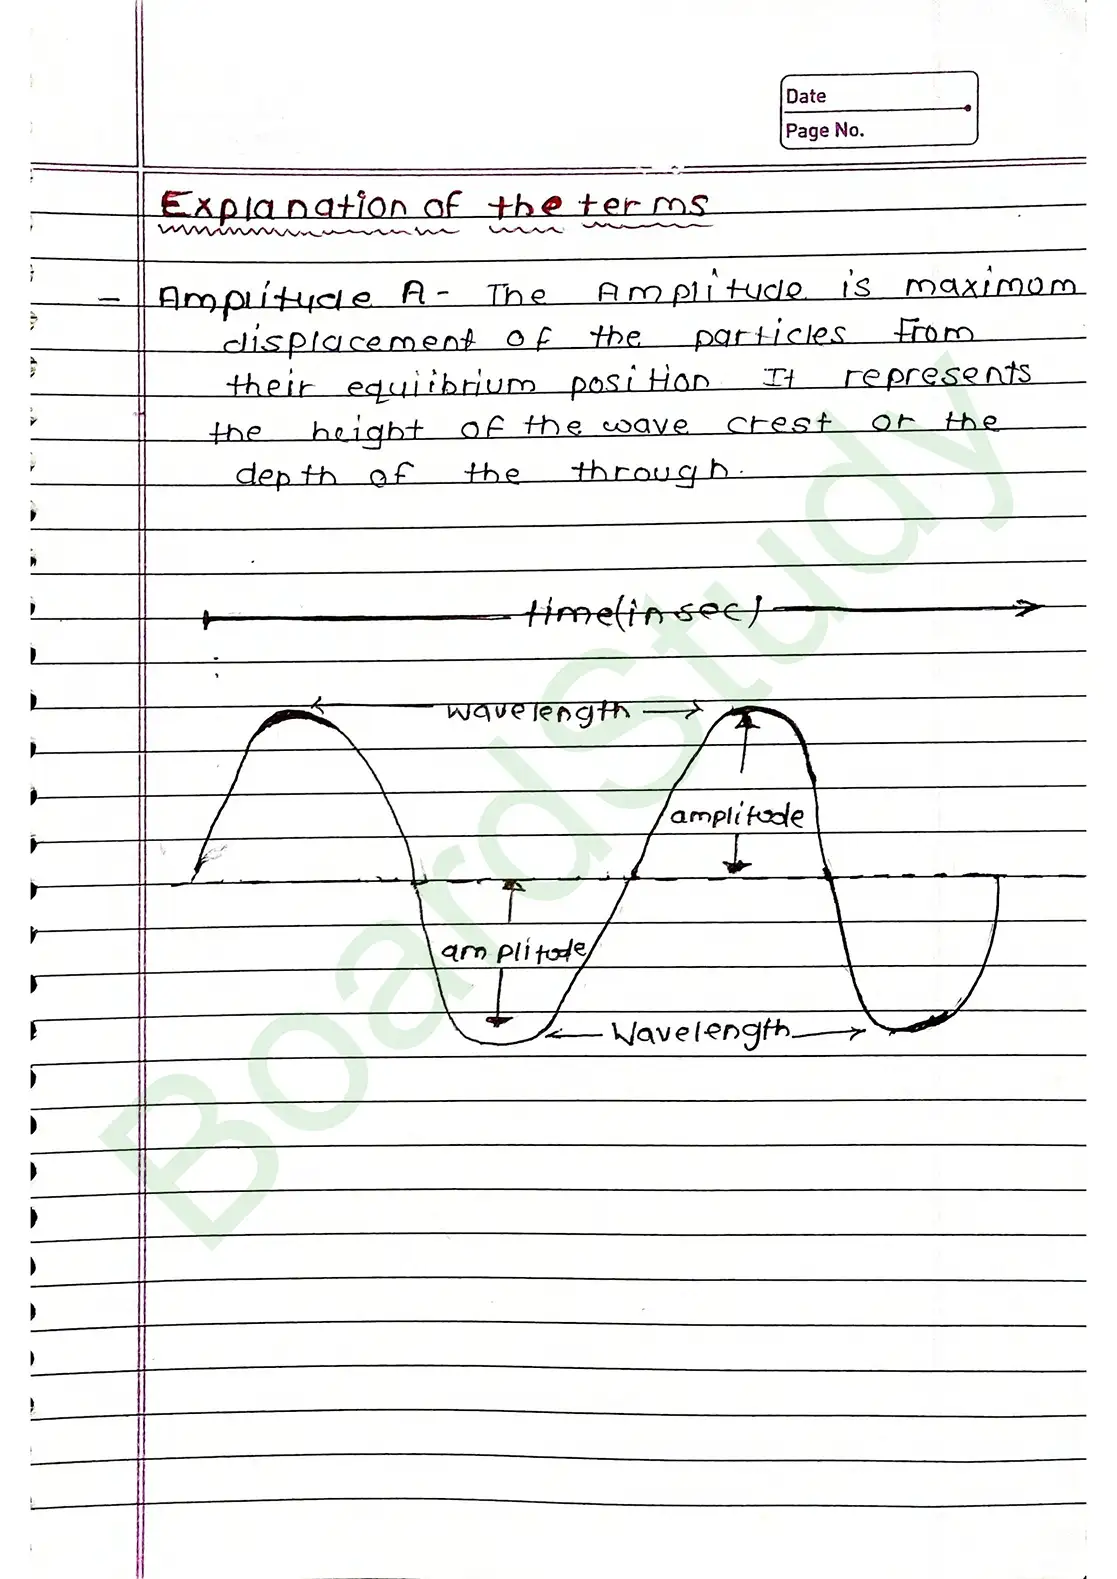 Date
Page No.
Explanation of the terms
- Amplitude A - The Amplitude is maximum
displacement of the particles From
their equiibrium position It represents
the height of the wave crest or the
depth of the through.
time(in sec)
wavelength
amplitude
amplitude
Wavelength
BoardStudy